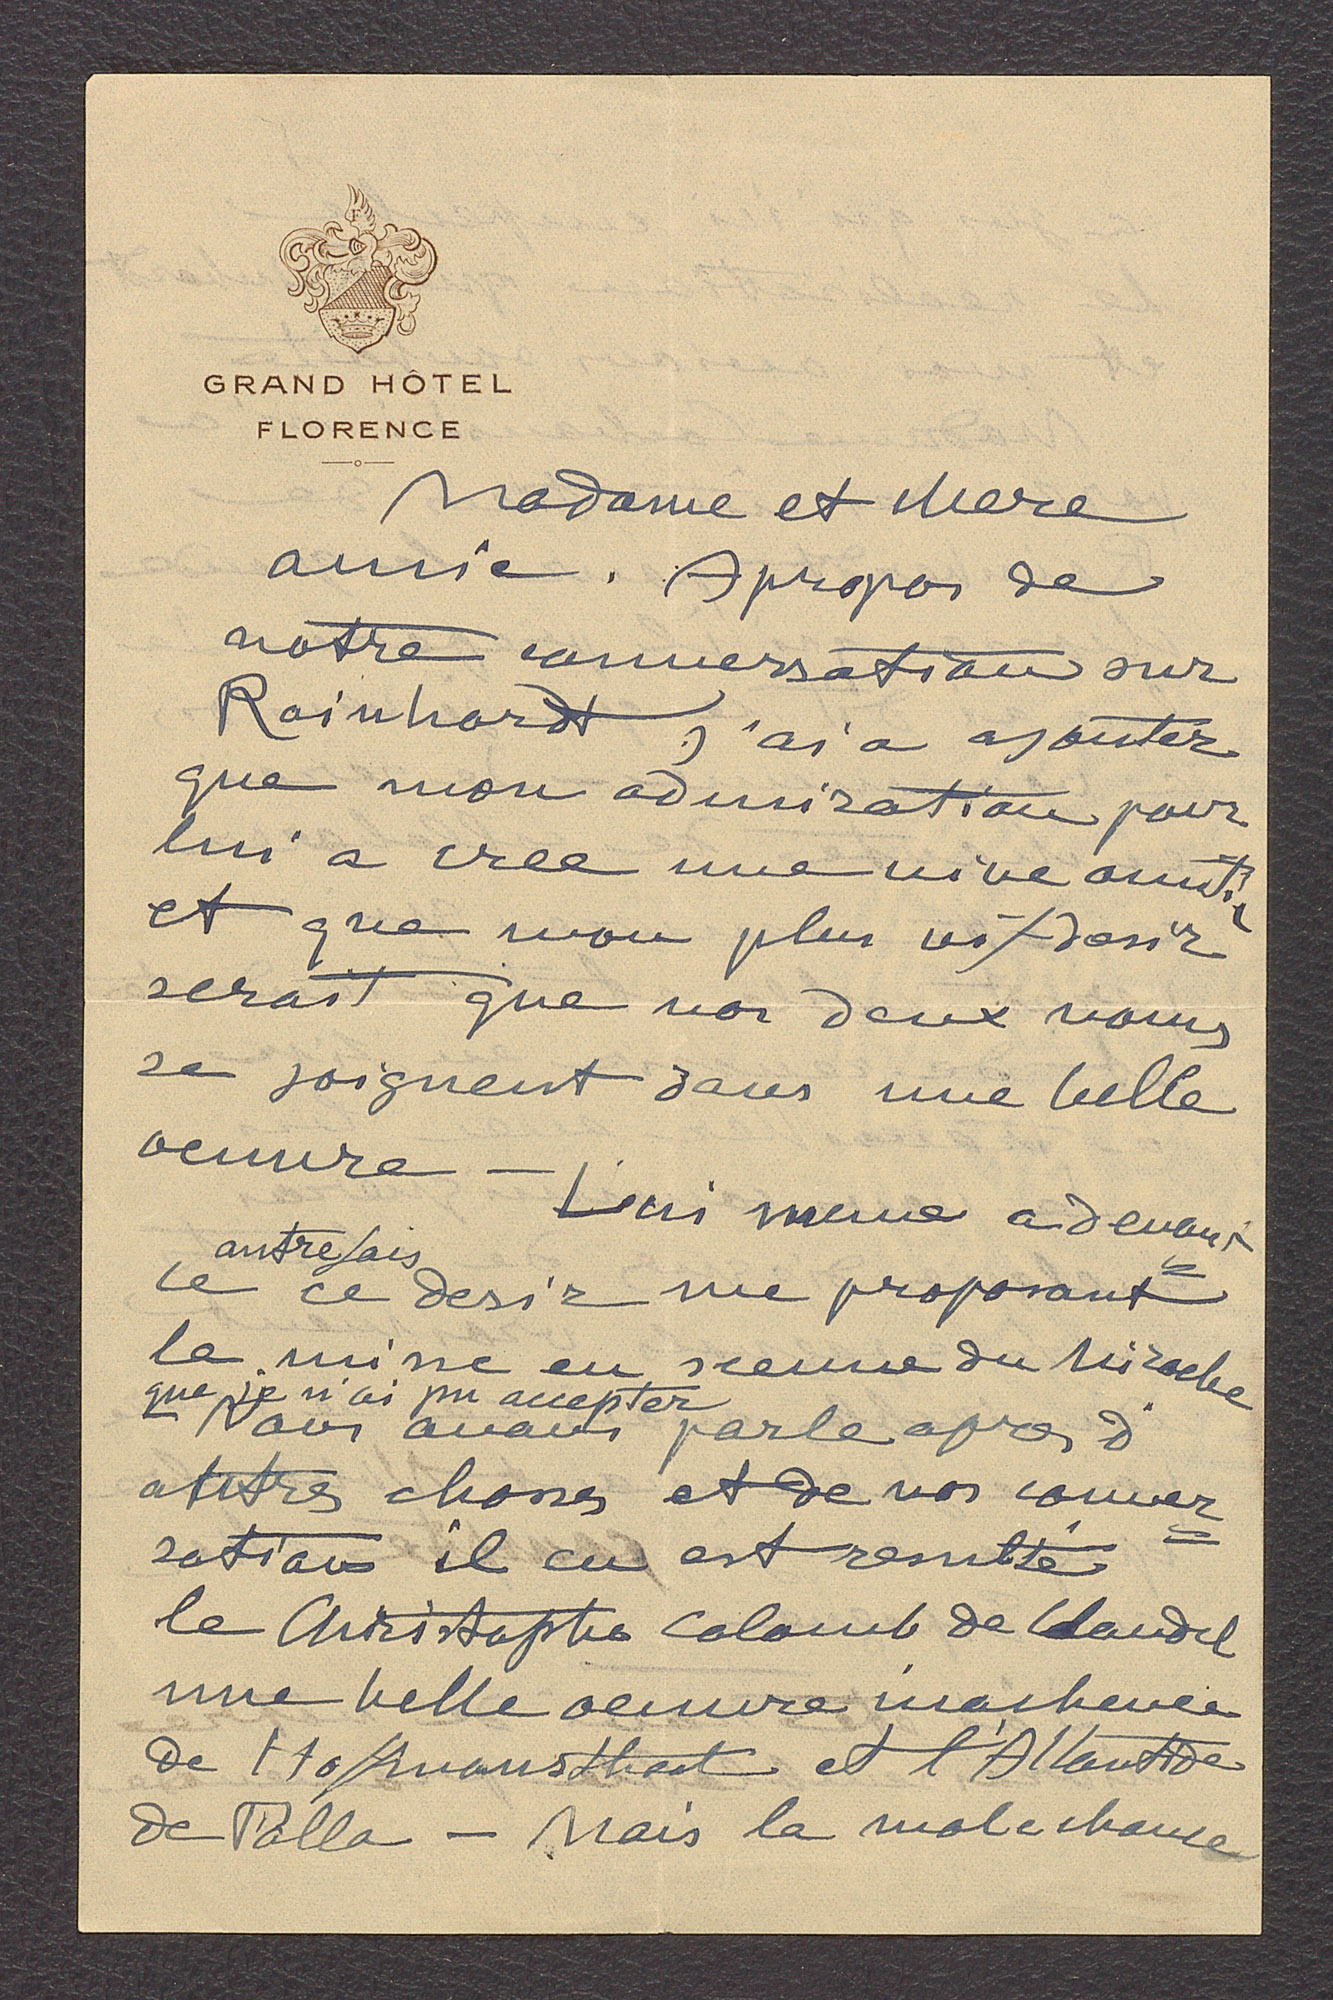 GRAND HÔTEL
FLORENCE
Madame et chere
amie. Apropos de
notre conversation sur
Rainhardt j'ai a ajouter
que mon admiration pour
lui a cree une vive amitie
et que mon plus vif desir
serait que nos deux noms
se joignent dans une belle
oeuvre —
Lui meme a devan=
autrefois
ce ce desir me proposant
la mise en scenne du Miracle
que je n'ai pu accepter
— Nous avons parle apres d'
autres choses et de nos conver=
sations il en est resulté
le Christophe Colomb de Claudel
une belle oeuvre inachevée
de Hofmansthal et l'Atlantide
de Falla — Mais la malechance